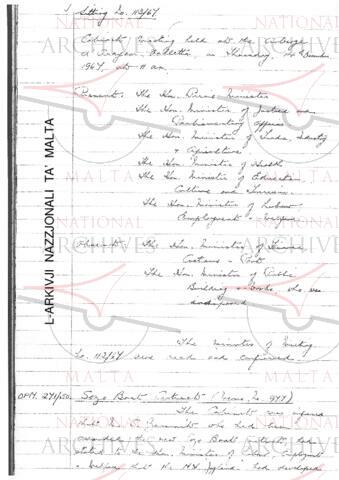 Sitting No. 113/67
Cabinet meeting held at the Auberge
d'Aragon, Valletta, on Thursday,
1967, at 11 am.
Present: The Hon. Prime Minister
The Hon. Minister of Justice and
Parliamentary Affairs
The Hon. Minister of Trade, Industry
+ Agriculture
The Hon. Minister of Health
The Hon. Minister of Education,
Culture and Tourism
The Hon. Minister of Labour,
Employment + Welfare
Absent: The Hon. Minister of Finance,
Customs + Port
The Hon. Minister of Public
Building + Works, who was
indisposed
The minutes of Sitting
No. 112/67 were read and confirmed.
OPM. 271/50 Gozo Boat Contract (Memo. No. 947)
The Cabinet was informed
that Mr. who had been
awarded the new Gozo Boat Contract, had
stated to the Hon. Minister of Labour, Employment
+ Welfare that the had developed
L-ARKIVJI NAZZJONALI TA' MALTA
NATIONAL
ARCHIVES
NATIONAL
ARCHIVES
NATIONAL
ARCHIVES
NATIONAL
ARCHIVES
NATIONAL
ARCHIVES
NATIONAL
ARCHIVES